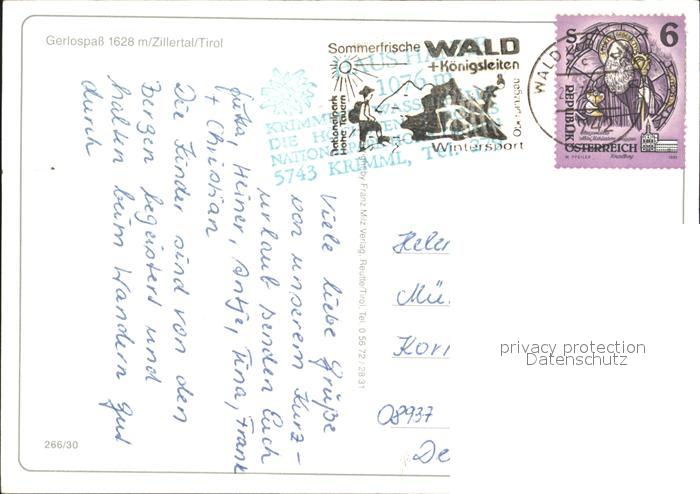 Gerlospaß 1628 m/Zillertal/Tirol
Sommerfrische WALD
+Königsleiten
Nationalpark
Hohe Tauern
Wintersport
WALD
1076 m
5743 KRIMML, Tel.
S 6
REPUBLIK
ÖSTERREICH
Viele liebe Grüße
von unserem Kurz-
urlaub senden Euch
Heiner, Antje, Tina, Frank
+ Christian
Die Kinder sind von den
Bergen begeistert und
halten beim Wandern gut
durch
by Franz Milz Verlag, Reutte/Tirol, Tel. 0 56 72 / 28 31
08937
De
privacy protection
Datenschutz
266/30